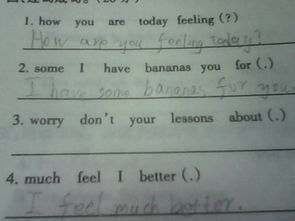 1. how you are today feeling (?)
How are you feeling today?
2. some I have bananas you for (.)
I have some bananas for you.
3. worry don't your lessons about (.)
4. much feel I better (.)
I feel much better.